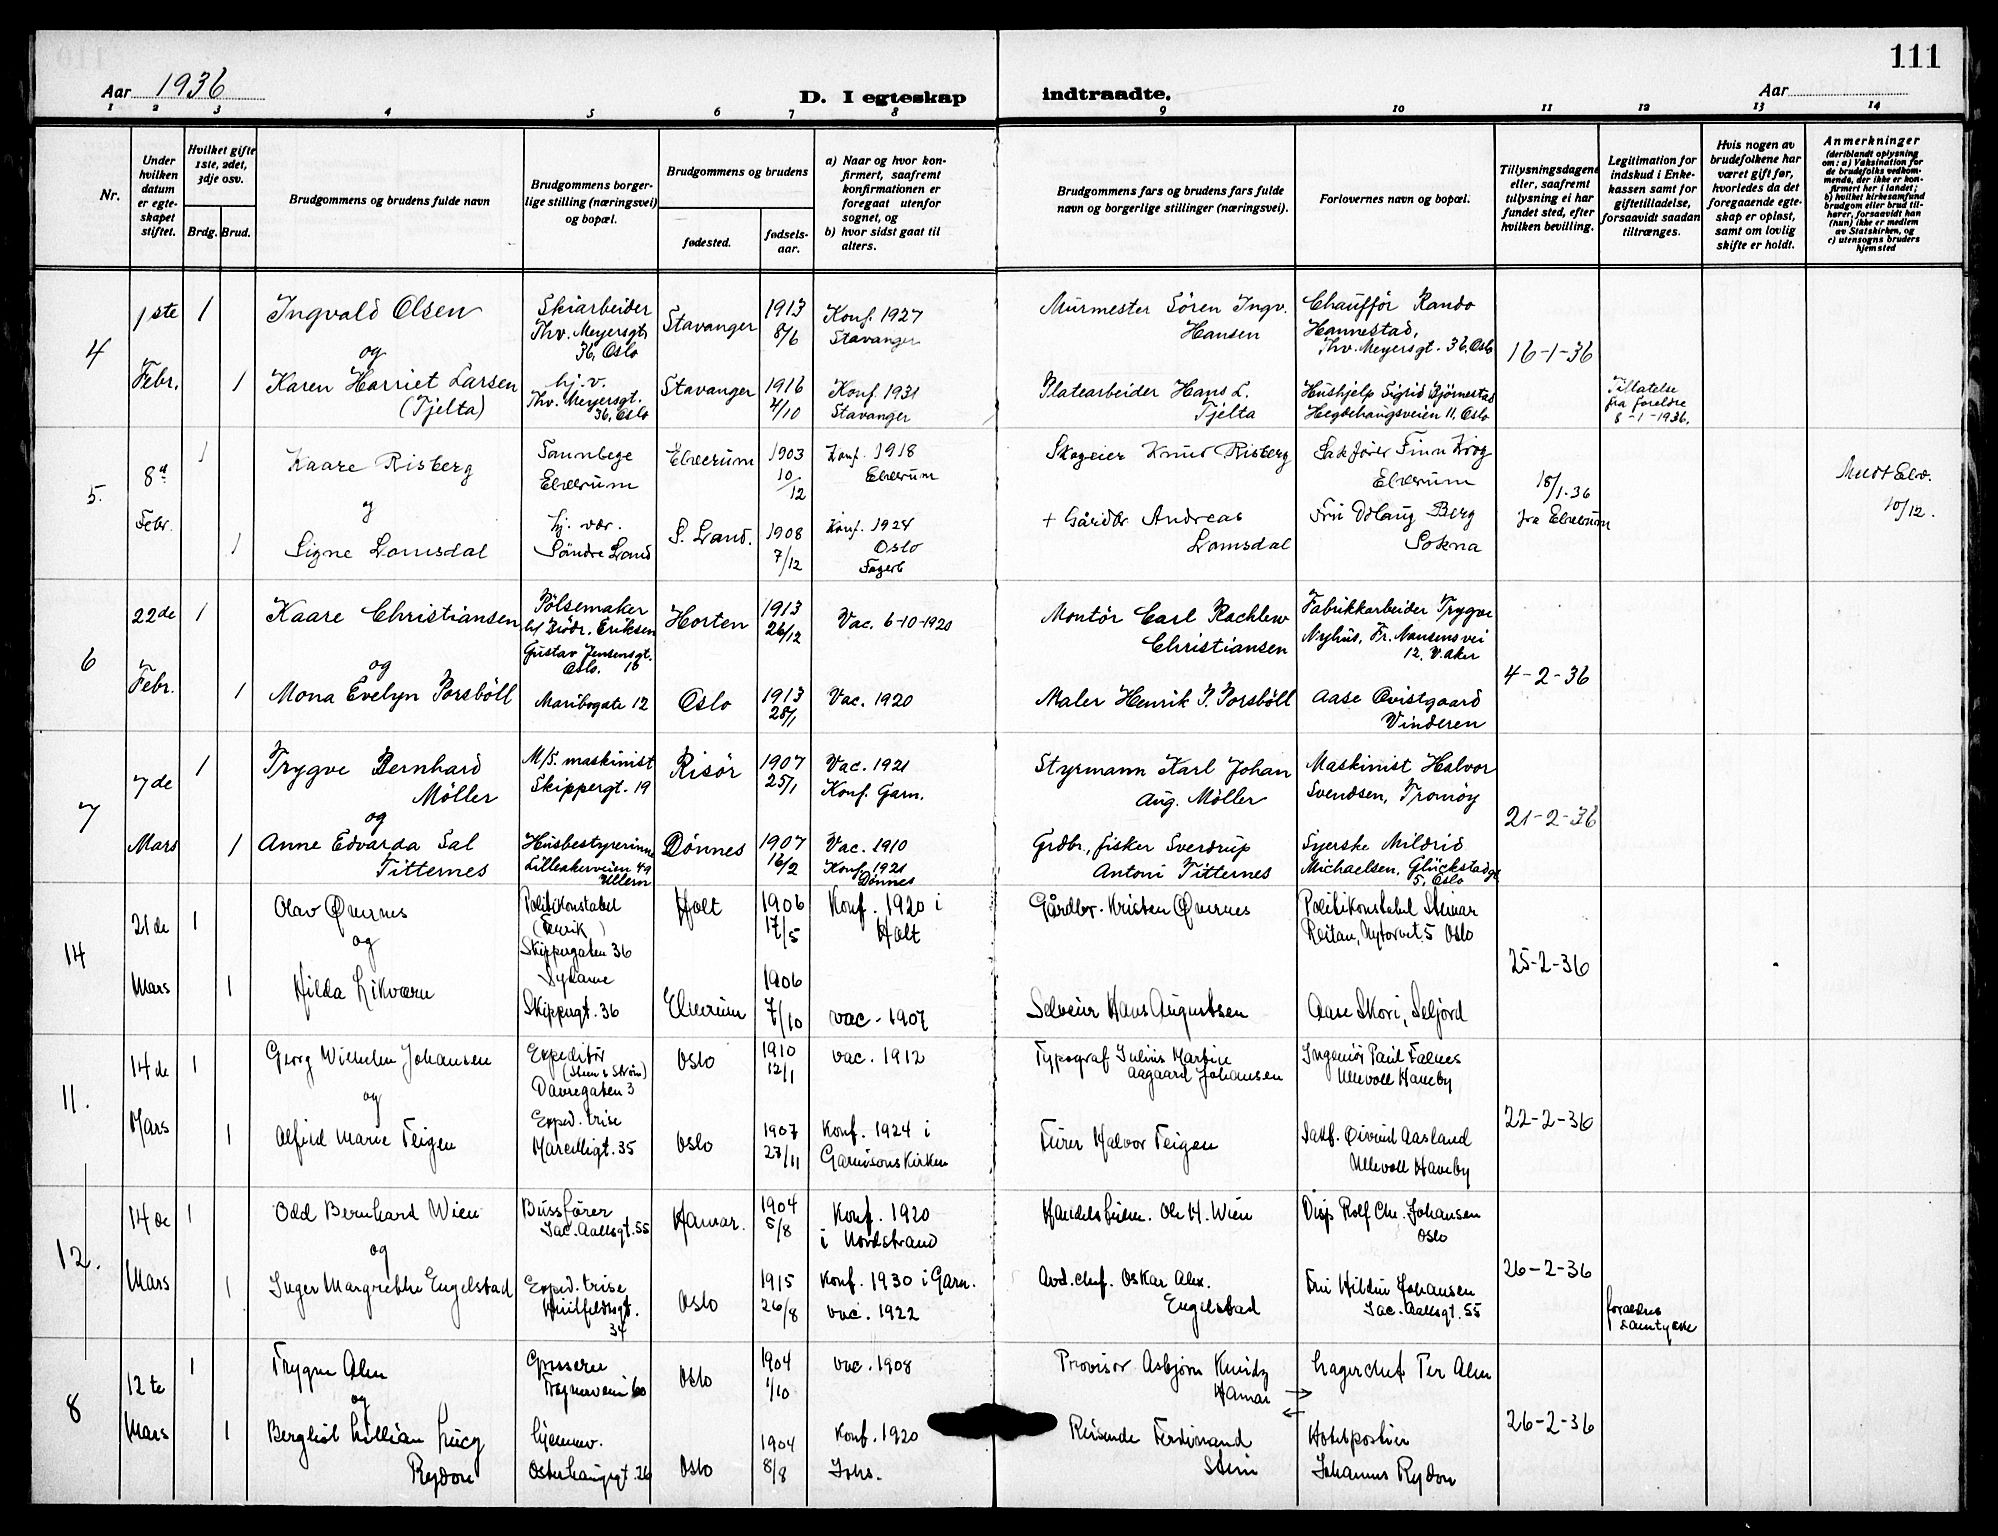 111
Aar 1936
D. I egteskap indtraadte.
Aar
1 2 3 4 5 6 7 8 9 10 11 12 13 14
Nr.
Under hvilken datum er egteskapet stiftet.
Hvilket gifte 1ste, 2det, 3dje osv.
Brdg. Brud.
Brudgommens og brudens fulde navn
Brudgommens borgerlige stilling (næringsvei) og bopæl.
Brudgommens og brudens
fødested.
fødselsaar.
a) Naar og hvor konfirmert, saafremt konfirmationen er foregaat utenfor sognet, og
b) hvor sidst gaat til alters.
Brudgommens fars og brudens fars fulde navn og borgerlige stillinger (næringsvei).
Forlovernes navn og bopæl.
Tillysningsdagene eller, saafremt tillysning ei har fundet sted, efter hvilken bevilling.
Legitimation for indskud i Enkekassen samt for giftetilladelse, forsaavidt saadan tiltrænges.
Hvis nogen av brudefolkene har været gift før, hvorledes da det foregaaende egteskap er opløst, samt om lovlig skifte er holdt.
Anmerkninger
(deriblandt oplysning om: a) Vaksination for de brudefolks vedkommende, der ikke er konfirmert her i landet; b) hvilket kirkesamfund brudgom eller brud tilhører, forsaavidt han (hun) ikke er medlem av Statskirken, og c) utensogns bruders hjemsted
4 1ste Febr. 1 Ingvald Olsen Skiarbeider Thv. Meyersgt. 36, Oslo Stavanger 1913 8/6 Konf. 1927 Stavanger Murmester Sören Ingv. Hansen Chaufför Rando Hannestad, Thv. Meyersgt. 36, Oslo 16-1-36
og
1 Karen Harriet Larsen (Tjelta) hj.v. Thv. Meyersgt. 36, Oslo Stavanger 1916 4/10 Konf. 1931 Stavanger Platearbeider Hans L. Tjelta Hushjelp Sigrid Björnestad Hegdehaugsveien 11, Oslo Tillatelse fra foreldre 8-1-1936.
5. 8d Febr. 1 Kaare Risberg Elverum Elverum 1903 10/12 Konf. 1918 Elverum Skogeier Knut Risberg Sakförer Finn Krog Elverum 18/1-36 fra Elverum 10/12.
og
1 Signe Lomsdal hj. vær. Söndre Land S. Land. 1908 7/12 Konf. 1924 Oslo Fagerb + Gårdbr. Andreas Lomsdal Fru Odlaug Berg Sokna
6 22de Febr. 1 Kaare Christiansen Pölsemaker h/ Brödr. Eriksen Gustav Jensensgt. 16 Oslo. Horten 1913 26/12 Vac. 6-10-1920 Montör Carl Rachlew Christiansen Fabrikkarbeider Trygve Nyhus, Fr. Nansens vei 12, V. Aker 4-2-36
og
1 Mona Evelyn Porsböll Maribogate 12 Oslo 1913 28/1 Vac. 1920 Maler Henrik P. Porsböll Aase Qvistgaard Vinderen
7 7de Mars 1 Trygve Bernhard Möller M/S. maskinist Skippergt. 19 Risör 1907 25/1 Vac. 1921 Konf. Garn. Styrmann Karl Johan Aug. Möller Maskinist Halvor Svendsen, Tromöy 21-2-36
og
1 Anne Edvarda Sal Titternes Husbestyrerinne Lilleakerveien 49 Ullern Dönnes 1907 16/2 Vac. 1910 Konf. 1921 Dönnes Grdbr., fisker Sverdrup Antoni Titternes Syerske Mildrid Michaelsen, Glückstadgt 5, Oslo
14 21de Mars 1 Olav Øvernes Politikonstabel Skippergaten 36 Holt 1906 17/5 Konf. 1920 i Holt Gårdbr. Kristen Øvernes Politikonstabel Steinar Reitan, Nytorvet 5 Oslo 25-2-36
og
1 Hilda Likværn Sydame Skippergt. 36 Elverum 1906 7/10 vac. 1907 Selveier Hans Augustsen Aase Skori, Seljord
11. 14de Mars 1 Georg Wilhelm Johansen Expeditör (Steen & Ström) Daaregaten 3 Oslo 1910 12/1 vac. 1912 Typograf Julius Martin Aagaard Johansen Ingeniör Paul Falnes Ullevoll Haveby 22-2-36
og
1 Alfhild Marie Teigen Exped. trise Marselligt. 35 Oslo 1907 27/11 Konf. 1924 i Garnisons Kirken Furer Halvor Teigen Sakf. Øivind Aasland Ullevoll Haveby
12. 14de Mars 1 Odd Bernhard Wien Bussfører Jac. Aallsgt. 55 Hamar. 1904 5/8 Konf. 1920 i Nordstrand Ole H. Wien Disp Rolf Chr. Johansen Oslo 26-2-36
og
1 Inger Margrethe Engelstad Exped. trise Huitfeldtsgt. 34 Oslo 1915 26/8 Konf. 1930 i Garn. vac. 1922 Avd. chef. Oskar Alex. Engelstad Fru Hildur Johansen Jac. Aallsgt. 55 foreldres samtykke
8 12te Mars 1 Trygve Alm Grosserer Oslo 1904 1/10 vac. 1908 Provisor Asbjørn Hamar Lagerchef Per Alm 26-2-36
og
1 Bergliot Lillian Lucy Rydon hjemmev. Osterhausgt. 26 Oslo 1904 8/8 Konf. 1920 Johs. Reisende Ferdinand Stein Hotelportier Johannes Rydon